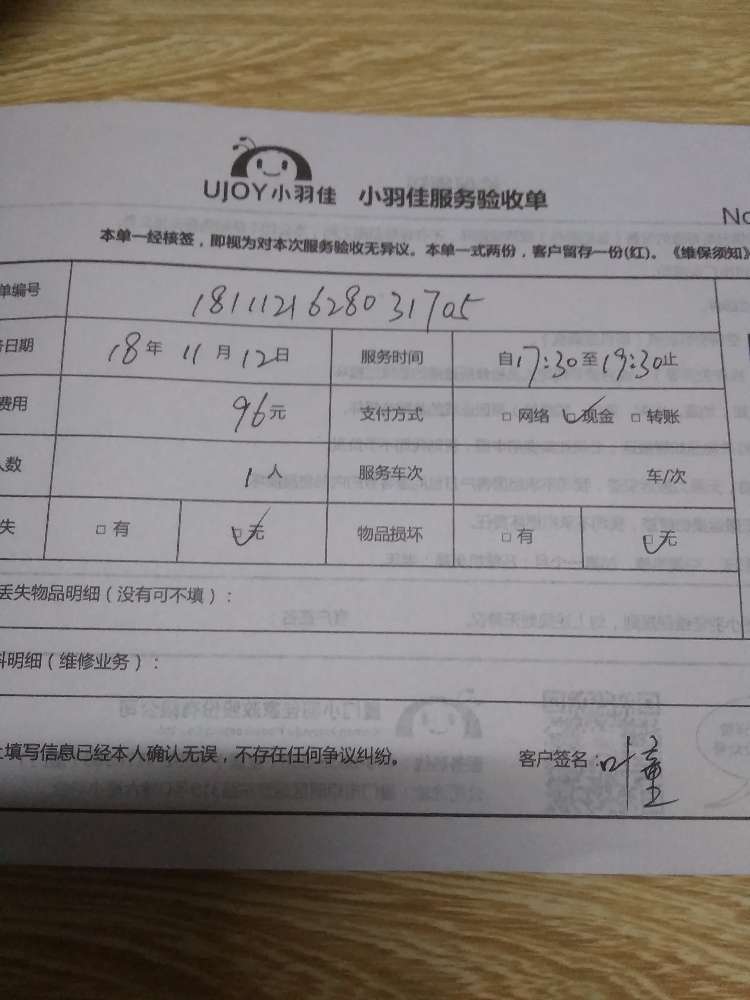 UJOY小羽佳 小羽佳服务验收单
No
本单一经核签，即视为对本次服务验收无异议。本单一式两份，客户留存一份(红)。《维保须知》
单编号 1811121628031705
务日期 18年11月12日 服务时间 自17:30至19:30止
费用 96元 支付方式 □网络 ☑现金 □转账
人数 1人 服务车次 车/次
失 □有 ☑无 物品损坏 □有 ☑无
丢失物品明细（没有可不填）：
料明细（维修业务）：
上填写信息已经本人确认无误，不存在任何争议纠纷。 客户签名：叶童